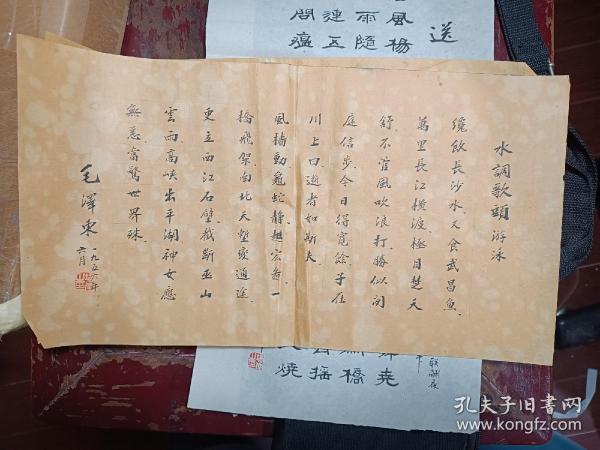 水調歌頭 游泳
纔飲長沙水又食武昌魚
萬里長江橫渡極目楚天
舒不管風吹浪打勝似閒
庭信步今日得寬餘子在
川上曰逝者如斯夫
風檣動龜蛇靜起宏畨一
橋飛架南北天塹變通途
更立西江石壁截斷巫山
雲雨高峽出平湖神女應
無恙當驚世界殊
毛澤東 一九五六年
六月
送
風楊
雨隨
連五
問瘟
堯
橋
搖
燒
孔夫子旧书网
www.kongfz.com